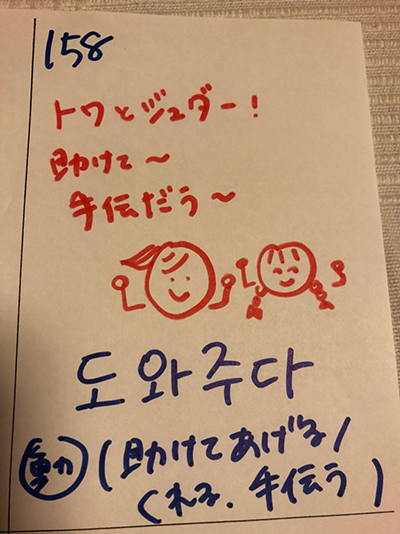 158
トワとジュダー!
助けて~
手伝だう~
도와주다
動 (助けてあげる/
くれる、手伝う)